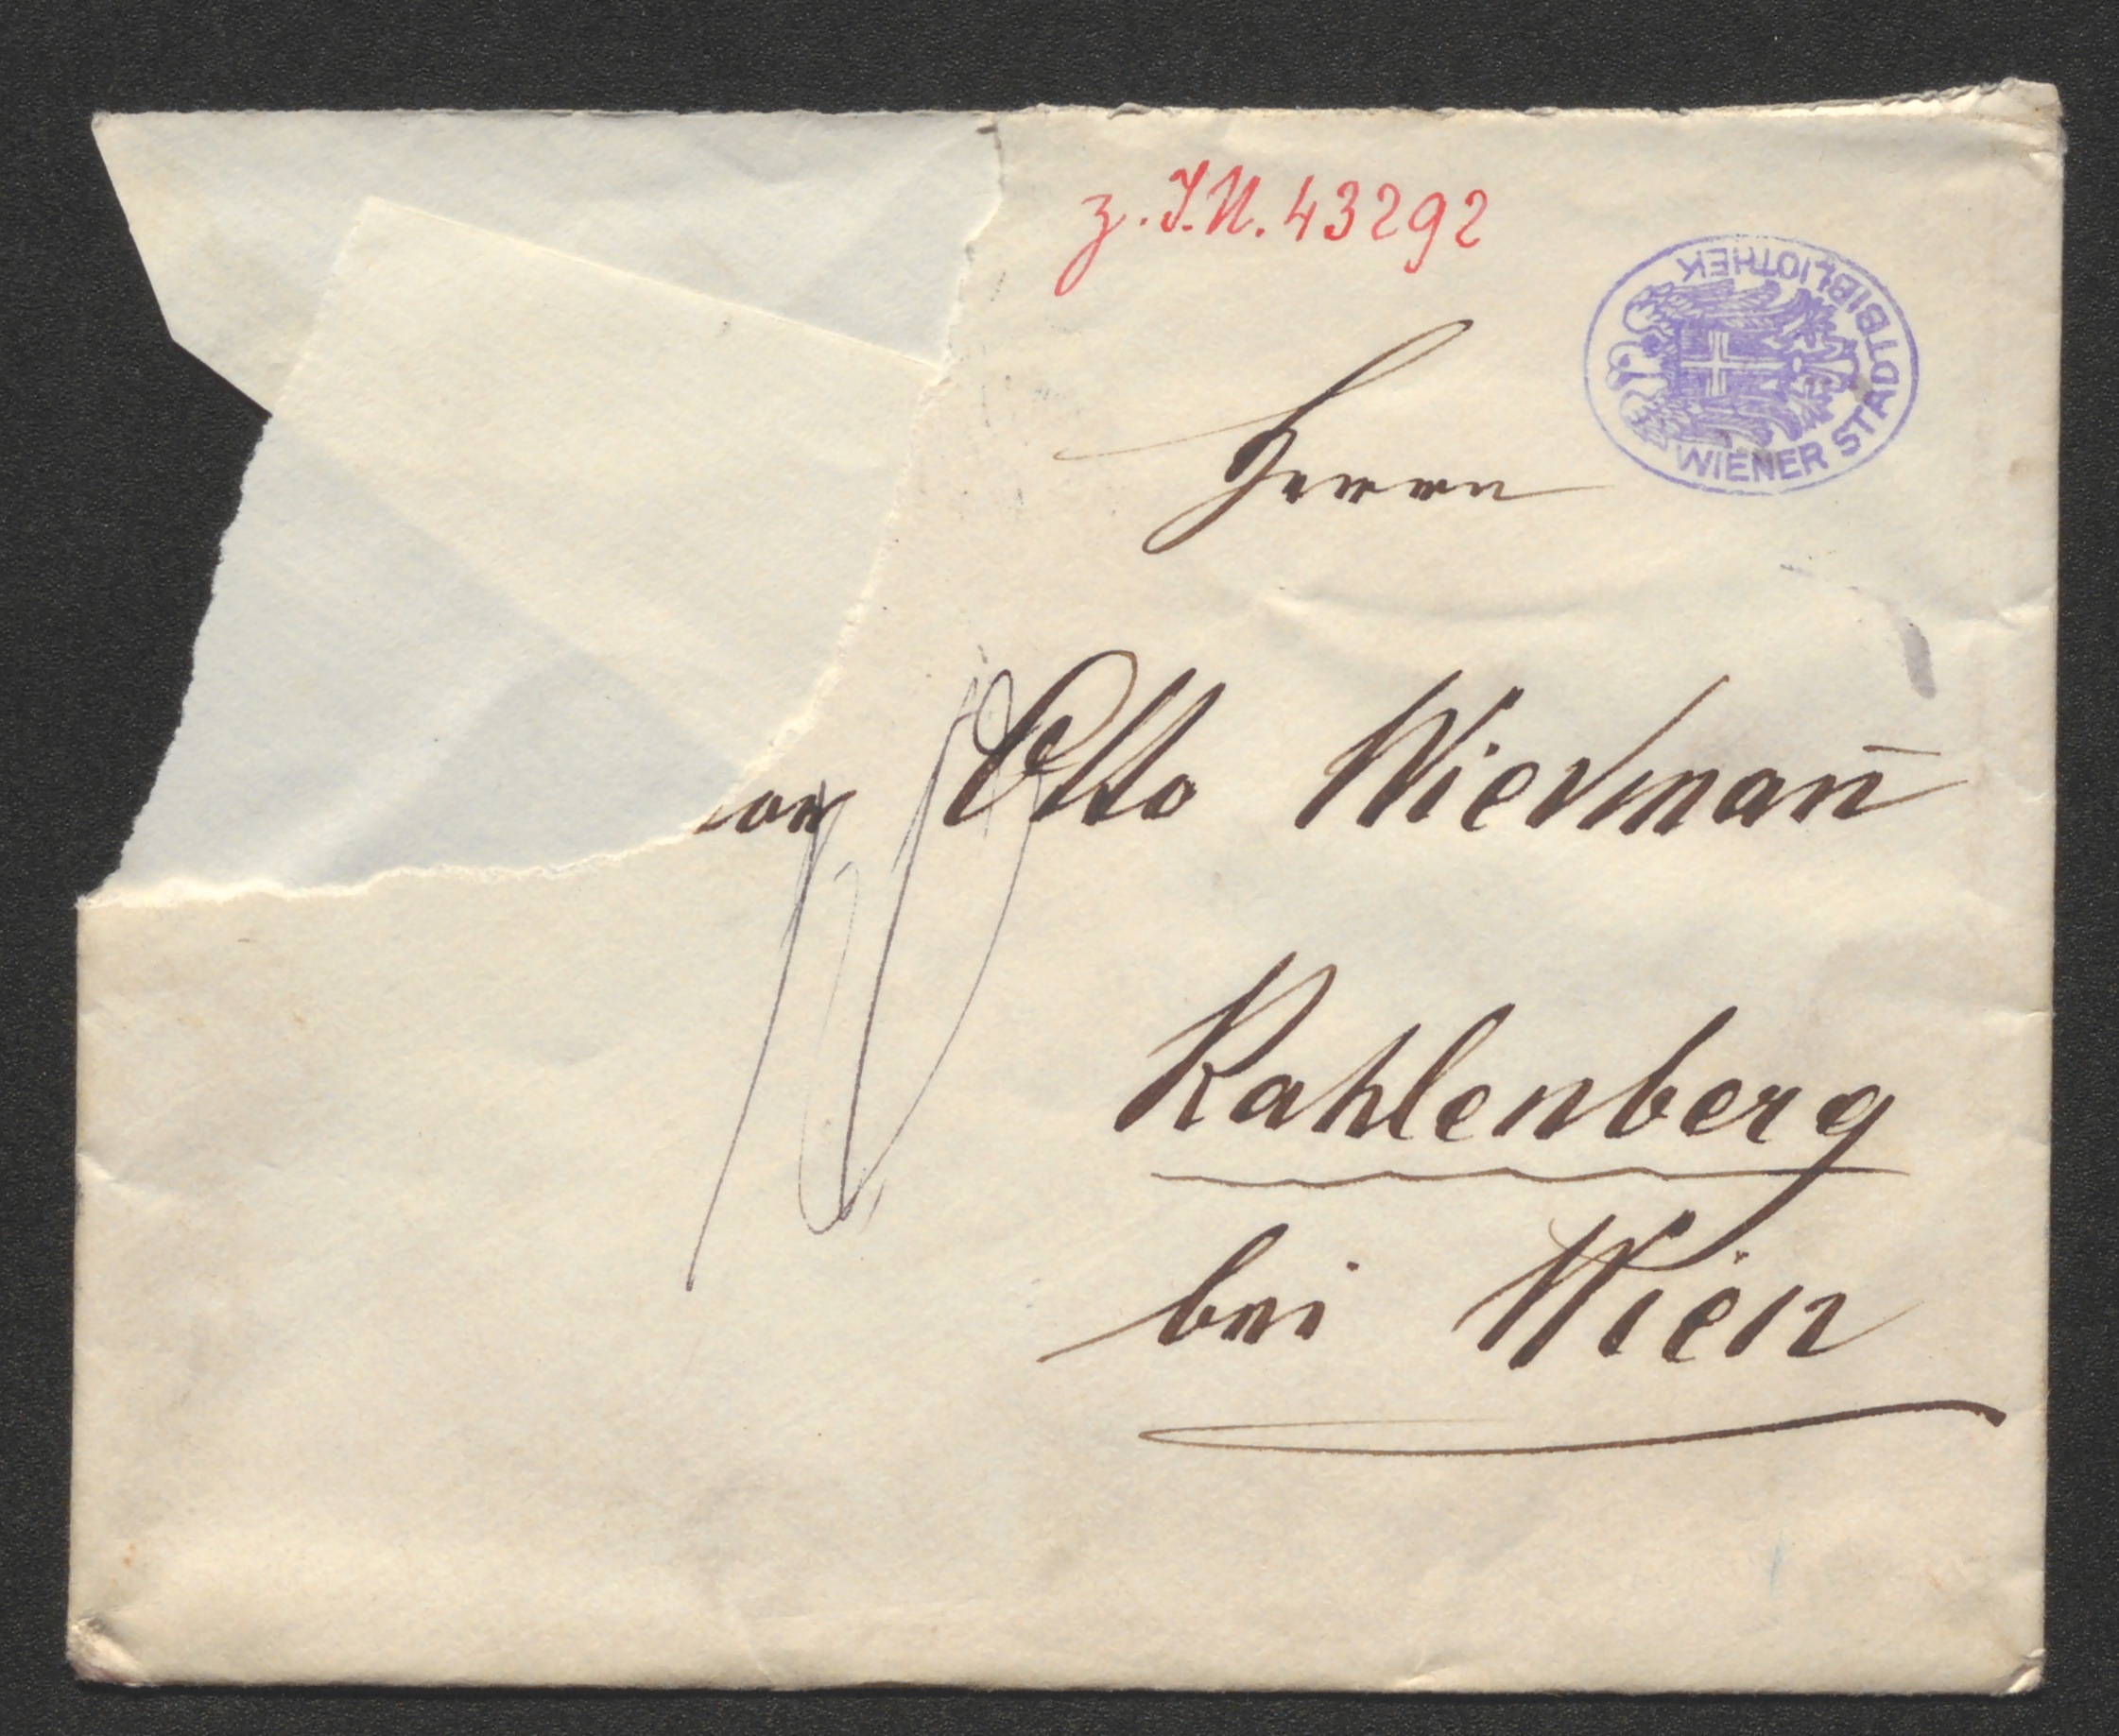 z. I.N. 43292
WIENER STADTBIBLIOTHEK
Herrn
Otto Wiesmañ
Kahlenberg
bei Wien